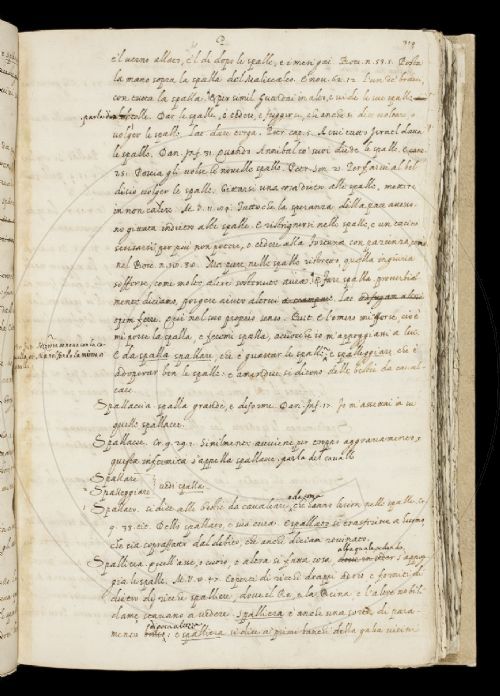 e'l verno allato, e'l dì dopo le spalle, e i mesi poi. Bocc. n. 53. 1. Posta
la mano sopra la spalla del Maliscalco. E nov. 62. 12 l'un de'
con tutta la spalla. E per simil. Guardai in alto, e vidi le sue spalle
Dar le spalle, o cedere, e fuggirsi, che anche si dice voltare, o
volger le spalle. lat. dare terga. Petr. cap. 5. A cui tutto Israel dava
le spalle. Dan. Inf. 31. Quando Annibal co' suoi diede le spalle. E
25. Poscia gli volse le novelle spalle. Petr. son. 21. Per farvi al bel
disio volger le spalle. Gittarsi una ma dietro alle spalle, mettere
in non calere. M. V. 11. Tutto che la speranza della pace
no gittata indietro alle spalle. E ristringersi nelle spalle, e un tacito
scusarsi per poi non potere, o cedere alla fortuna con pazienza
nel Bocc. n. 30. Ma pure nelle spalle ristretto, quella ingiuria
sofferse, come molte altre sostenute avea. E fare spalla proverbial
mente diciamo, porgere aiuto altrui lat.
opem ferre. qui nel suo proprio senso. But. E l'omero mi porse, cioè
mi porse la spalla, e fecemi spalla, acciocchè io m'appoggiassi a lui.
E da spalla spallare, che è guastar le spalle e spalleggiare che è
adoperar ben le spalle: e amendue si dicono delle bestie da caval-
care
Spallaccia spalla grande, e diforme. Dan. Inf. 17. Io m'assettai in su
quelle spallacce.
Spallacce. Cr. 9. 29. 2. Similmente avviene per troppo aggravamento, e
questa infermità s'appella spallacce. parla del cavallo
Spallare
Spalleggiare vedi spalla.
Spallato. si dice alle bestie da cavalcare, che hanno lesion nelle spalle. Cr.
9. 33. tit. Dello spallato, e sua cura. E spallato si trasferisce a huomo
che sia sopraffatto dal debito, che anche diciam rovinato.
Spalliera. quell'asse, o cuoio, o altra sì fatta cosa, alla quale sedendo, s'appog
gia le spalle. M. V. Coperti di ricchi drappi d'oro e forniti di
dietro di ricche spalliere dove il Re, e la Reina e l'altre nobil-
dame stavano a vedere. Spalliera è anche una sorta di para-
mento: e spalliera si dice a' primi banchi della galea vicini